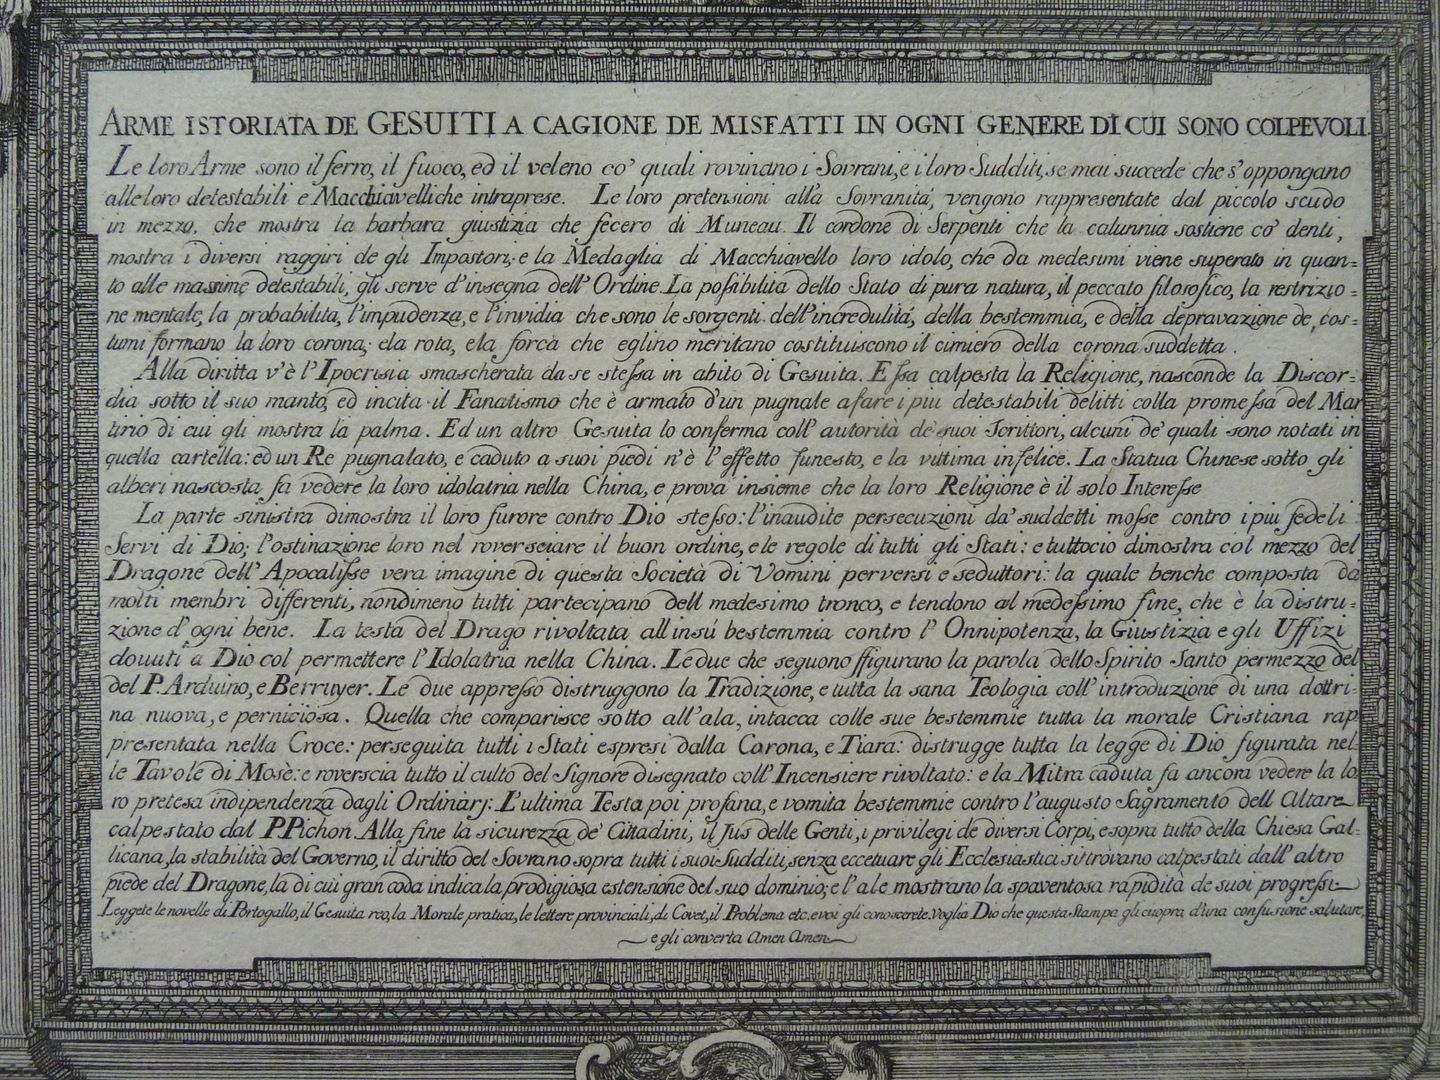 ARME ISTORIATA DE GESUITI A CAGIONE DE MISFATTI IN OGNI GENERE DI CUI SONO COLPEVOLI.
Le loro Arme sono il ferro, il fuoco, ed il veleno co' quali rovinano i Sovrani, e i loro Sudditi, se mai succede che s'oppongano
alle loro detestabili e Macchiavelliche intraprese. Le loro pretensioni alla Sovranitá, vengono rappresentate dal piccolo scudo
in mezzo, che mostra la barbara giustizia che fecero di Muneau. Il cordone di Serpenti che la calunnia sostiene co' denti,
mostra i diversi raggiri de gli Impostori; e la Medaglia di Macchiavello loro idolo, che da medesimi viene superato in quan=
to alle massime detestabili, gli serve d'insegna dell'Ordine. La possibilita dello Stato di pura natura, il peccato filosofico, la restrizio=
ne mentale, la probabilita, l'impudenza, e l'invidia che sono le sorgenti dell'incredulitá, della bestemmia, e della depravazione de cos=
tumi formano la loro corona; e la rota, e la forca che eglino meritano costituiscono il cimiero della corona suddetta.
Alla diritta v'è l'Ipocrisia smascherata da se stessa in abito di Gesuita. Essa calpesta la Religione, nasconde la Discor=
dia sotto il suo manto, ed incita il Fanatismo che è armato d'un pugnale a fare i piu detestabili delitti colla promessa del Mar
tirio di cui gli mostra la palma. Ed un altro Gesuita lo conferma coll'autorità de' suoi Scrittori, alcuni de' quali sono notati in
quella cartella: ed un Re pugnalato, e caduto a suoi piedi n'è l'effetto funesto, e la vittima infelice. La Statua Chinese sotto gli
alberi nascosta fa vedere la loro idolatria nella China, e prova insieme che la loro Religione è il solo Interesse
La parte sinistra dimostra il loro furore contro Dio stesso: l'inaudite persecuzioni da' suddetti mosse contro i piu fedeli
Servi di Dio; l'ostinazione loro nel roversciare il buon ordine, e le regole di tutti gli Stati: e tuttocio dimostra col mezzo del
Dragone dell'Apocalisse vera imagine di questa Società di Vomini perversi e seduttori: la quale benche composta da
molti membri differenti, nondimeno tutti partecipano dell medesimo tronco, e tendono al medessimo fine, che è la distru=
zione d'ogni bene. La testa del Drago rivoltata all'insú bestemmia contro l'Onnipotenza, la Giustizia e gli Uffizi
dovuti a Dio col permettere l'Idolatria nella China. Le due che seguono ffigurano la parola dello Spirito Santo per mezzo del
del P. Arduino, e Berruyer. Le due appresso distruggono la Tradizione, e tutta la sana Teologia coll'introduzione di una dottri=
na nuova, e perniciosa. Quella che comparisce sotto all'ala, intacca colle sue bestemmie tutta la morale Cristiana rap
presentata nella Croce: perseguita tutti i Stati espresi dalla Corona, e Tiara: distrugge tutta la legge di Dio figurata nel=
le Tavole di Mosè: e roverscia tutto il culto del Signore disegnato coll'Incensiere rivoltato: e la Mitra caduta fa ancora vedere la lo
ro pretesa indipendenza dagli Ordinarj: L'ultima Testa poi profana, e vomita bestemmie contro l'augusto Sagramento dell Altare
calpestato dal P. Pichon. Alla fine la sicurezza de' Cittadini, il Jus delle Genti, i privilegi de diversi Corpi, e sopra tutto della Chiesa Gal=
licana, la stabilità del Governo, il diritto del Sovrano sopra tutti i suoi Sudditi, senza eccetuare gli Ecclesiastici si trovano calpestati dall'altro
piede del Dragone, la di cui gran coda indica la prodigiosa estensione del suo dominio; e l'ale mostrano la spaventosa rapidità de suoi progressi
Leggete le novelle di Portogallo, il Gesuita reo, la Morale pratica, le lettere provinciali, di Covet, il Problema etc. e voi gli conoscerete. Voglia Dio che questa Stampa gli cuopra d'una confusione salutare,
e gli converta Amen Amen